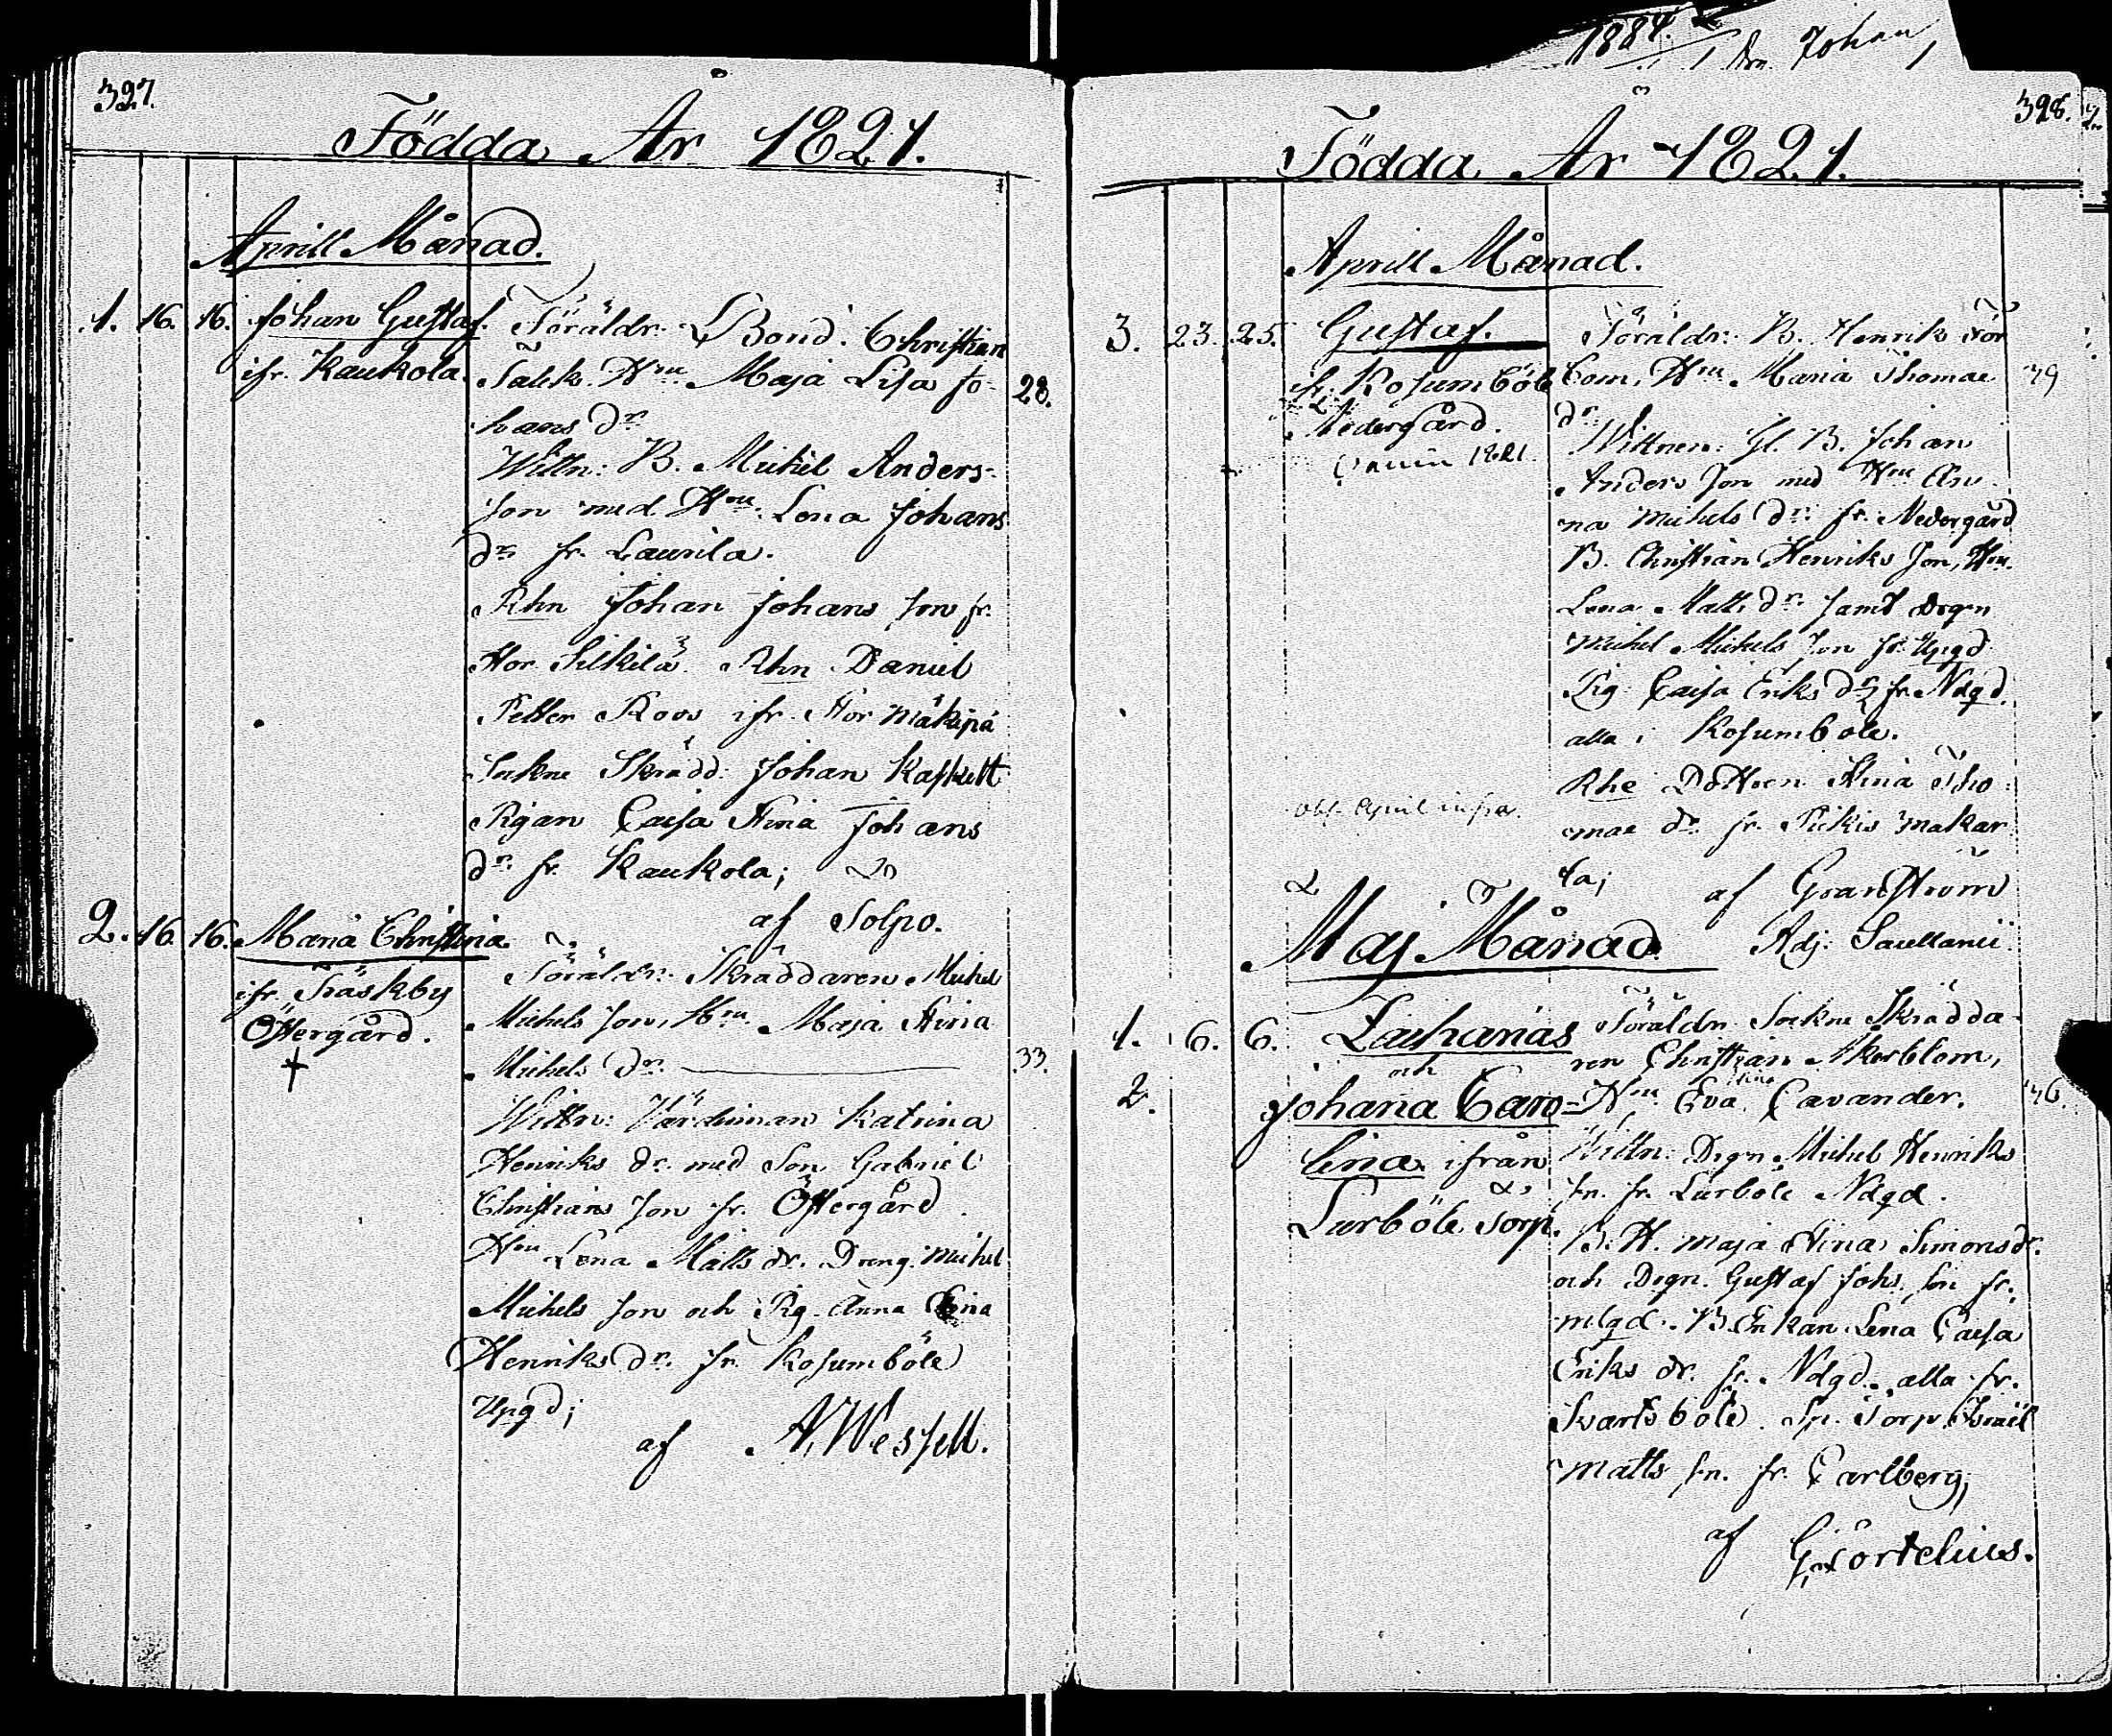 327.
Födda År 1821.
Aprill Månad.
1. 16. 16. Johan Gustaf.
ifr. Kaukola.
Föräldr. Bond. Christian
Salek. Hru Maja Lisa Jo-
hans dr
28.
Wittn: B. Michel Anders-
son med Hru Lena Johans
dr fr. Laurila.
Rhn Johan Johans son fr.
Hor Silkilä. Rhn Daniel
Petter Roos ifr. Hor Mäkipä
Sockne Skrädd: Johan Kaskett
Pigan Caisa Stina Johans
dr fr. Kaukola;
af Solpo.
2. 16 16. Maria Christina
ifr. Träskby
Östergård.
†
Föräldr: Skräddaren Michel
Michels son, Hru Maja Stina
Michels dr.
33.
Wittn: Värdinnan Katrina
Henriks dr. med Son Gabriel
Christians son fr. Östergård
Hru Lena Matts dr. Dreng. Michel
Michels son och Pig. Anna Stina
Henriks dr. fr. Kosumböle
Upgd;
af A. Wessell.
1884.
Johan
328.
Födda År 1821.
Aprill Månad.
3. 23. 25. Gustaf.
fr. Kosumböle
Nedergård.
1821.
Föräldr: B. Henrik
Hru Maria Thomae
dr.
39
Wittnen: B. Johan
Anders son med Hru An-
na Michels dr: fr. Nedergård
B. Christian Henriks son, Hru
Lena Matts dr. samt Drgn
Michel Michels son fr. Upgd
Pig. Caisa Eriks dr fr. Ndgd.
alla i Kosumböle.
Rhe Dottren Stina Tho-
mae dr. fr. Pickis makar
la;
af Granström
Adj.
Maj Månad
1. 6. 6. Zacharias
och
2. Johana Caro-
lina ifrån
Lurböle torp.
Föräldr. Sockne Skrädda-
ren Christian Åkerblom,
Hru Eva Stina Cavander.
36.
Wittn: Drgn Michel Henriks
sn. fr. Lurböle Ndgd.
B. H. Maja Stina Simonsdr.
och Drgn. Gustaf Johs. son fr.
mlgd. B. Enkan Lena Caisa
Eriks dr. fr. Ndgd. alla fr.
Svartsböle. Sp. Torp. Israel
Matts sn. fr. Carlberg;
af G. Tortelius.